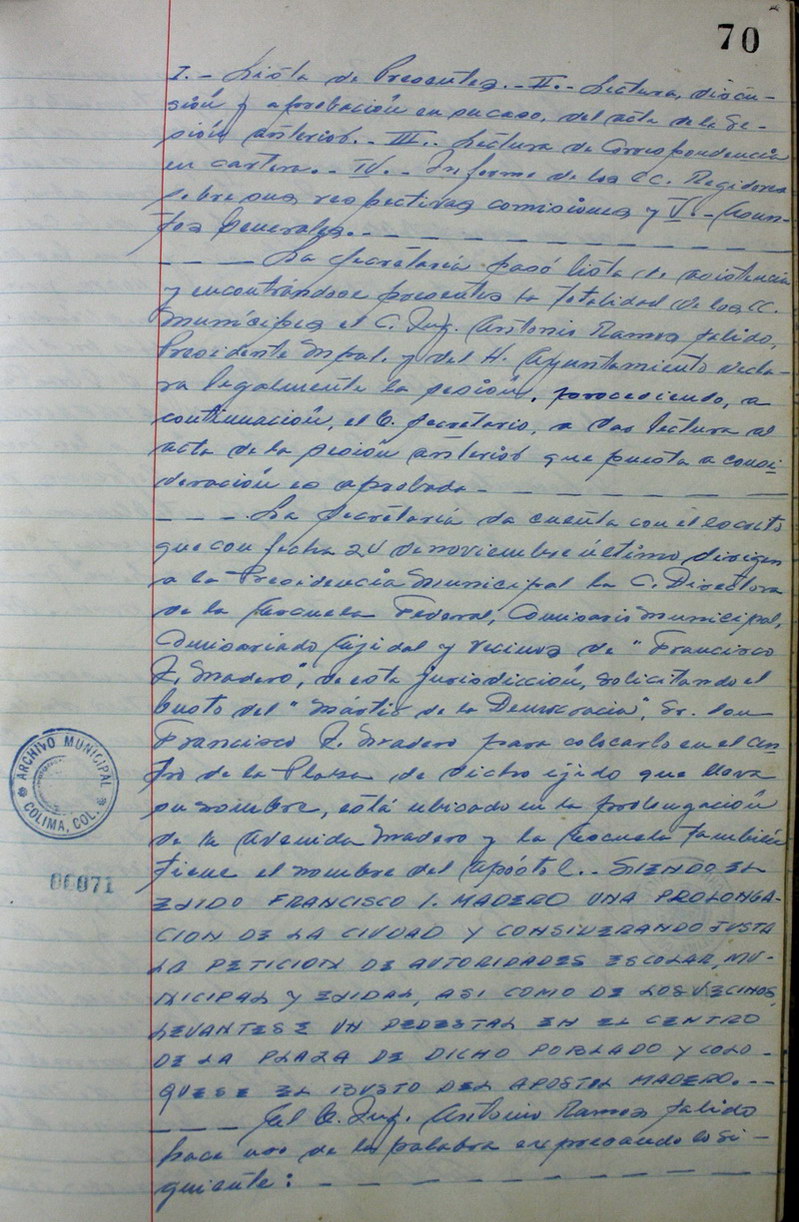 70
I.- Lista de Presentes.- II.- Lectura, discu-
sión y aprobación en su caso, del acta de la Se-
sión anterior.- III.- Lectura de Correspondencia
en cartera.- IV.- Informe de los CC. Regidores
sobre sus respectivas comisiones y V.- Asun-
tos Generales.- - - - - - - - - -
- - - - La Secretaría pasó lista de asistencia
y encontrándose presentes la totalidad de los CC.
Munícipes el C. Ing. Antonio Ramos Salido,
Presidente Mpal. y del H. Ayuntamiento decla-
ra legalmente la sesión, procediendo, a
continuación, el C. Secretario, a dar lectura al
acta de la sesión anterior que puesta a consi-
deración es aprobada.- - - - - - - -
- - - - La Secretaría da cuenta con el escrito
que con fecha 24 de noviembre último, dirigen
a la Presidencia Municipal la C. Directora
de la Escuela Federal, Comisario Municipal,
Comisariado Ejidal y vecinos de "Francisco
I. Madero", de esta jurisdicción, solicitando el
busto del "Mártir de la Democracia", Sr. don
Francisco I. Madero para colocarlo en el cen-
tro de la Plaza de dicho ejido que lleva
su nombre, está ubicado en la prolongación
de la Avenida Madero y la Escuela también
tiene el nombre del Apóstol.- SIENDO EL
EJIDO FRANCISCO I. MADERO UNA PROLONGA-
CION DE LA CIUDAD Y CONSIDERANDO JUSTA
LA PETICION DE AUTORIDADES ESCOLAR, MU-
NICIPAL Y EJIDAL, ASI COMO DE LOS VECINOS,
LEVANTESE UN PEDESTAL EN EL CENTRO
DE LA PLAZA DE DICHO POBLADO Y COLO-
QUESE EL BUSTO DEL APOSTOL MADERO.- -
- - - - El C. Ing. Antonio Ramos Salido
hace uso de la palabra expresando lo si-
guiente: - - - - - - - - - -
ARCHIVO MUNICIPAL
COLIMA, COL.
00071